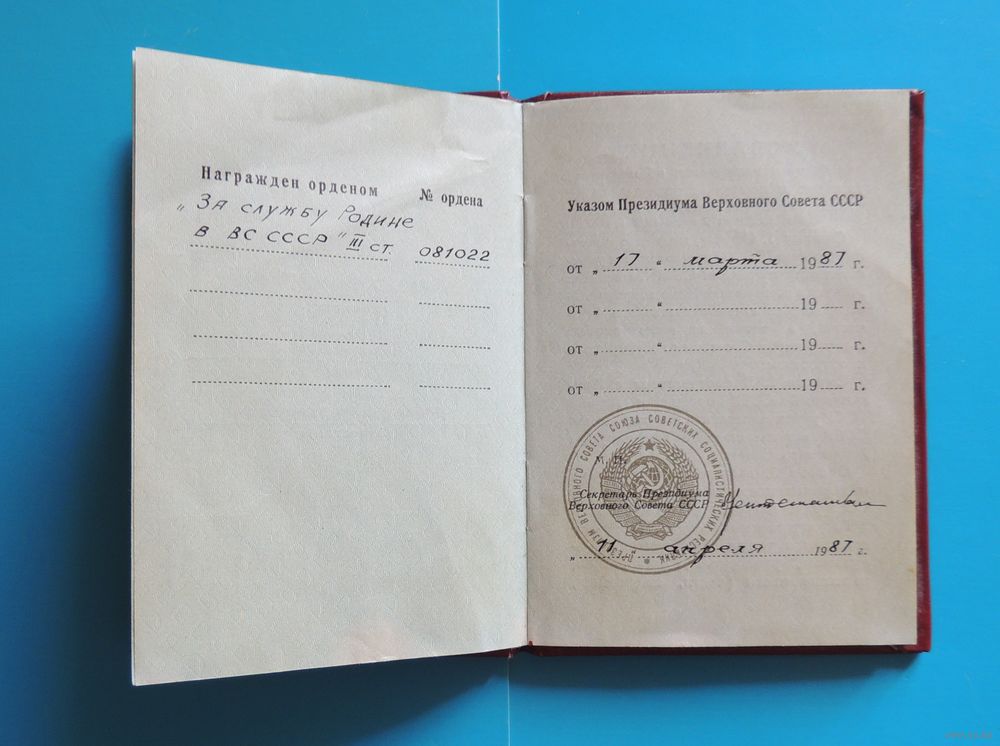 Награжден орденом № ордена
„За службу Родине
в ВС СССР“ III ст. 081022
Указом Президиума Верховного Совета СССР
от „ 17 “ марта 1987 г.
от „ “ 19 г.
от „ “ 19 г.
от „ “ 19 г.
ПРЕЗИДИУМ ВЕРХОВНОГО СОВЕТА СОЮЗА СОВЕТСКИХ СОЦИАЛИСТИЧЕСКИХ РЕСПУБЛИК
М. П.
Секретарь Президиума
Верховного Совета СССР
„ 11 “ апреля 1987 г.